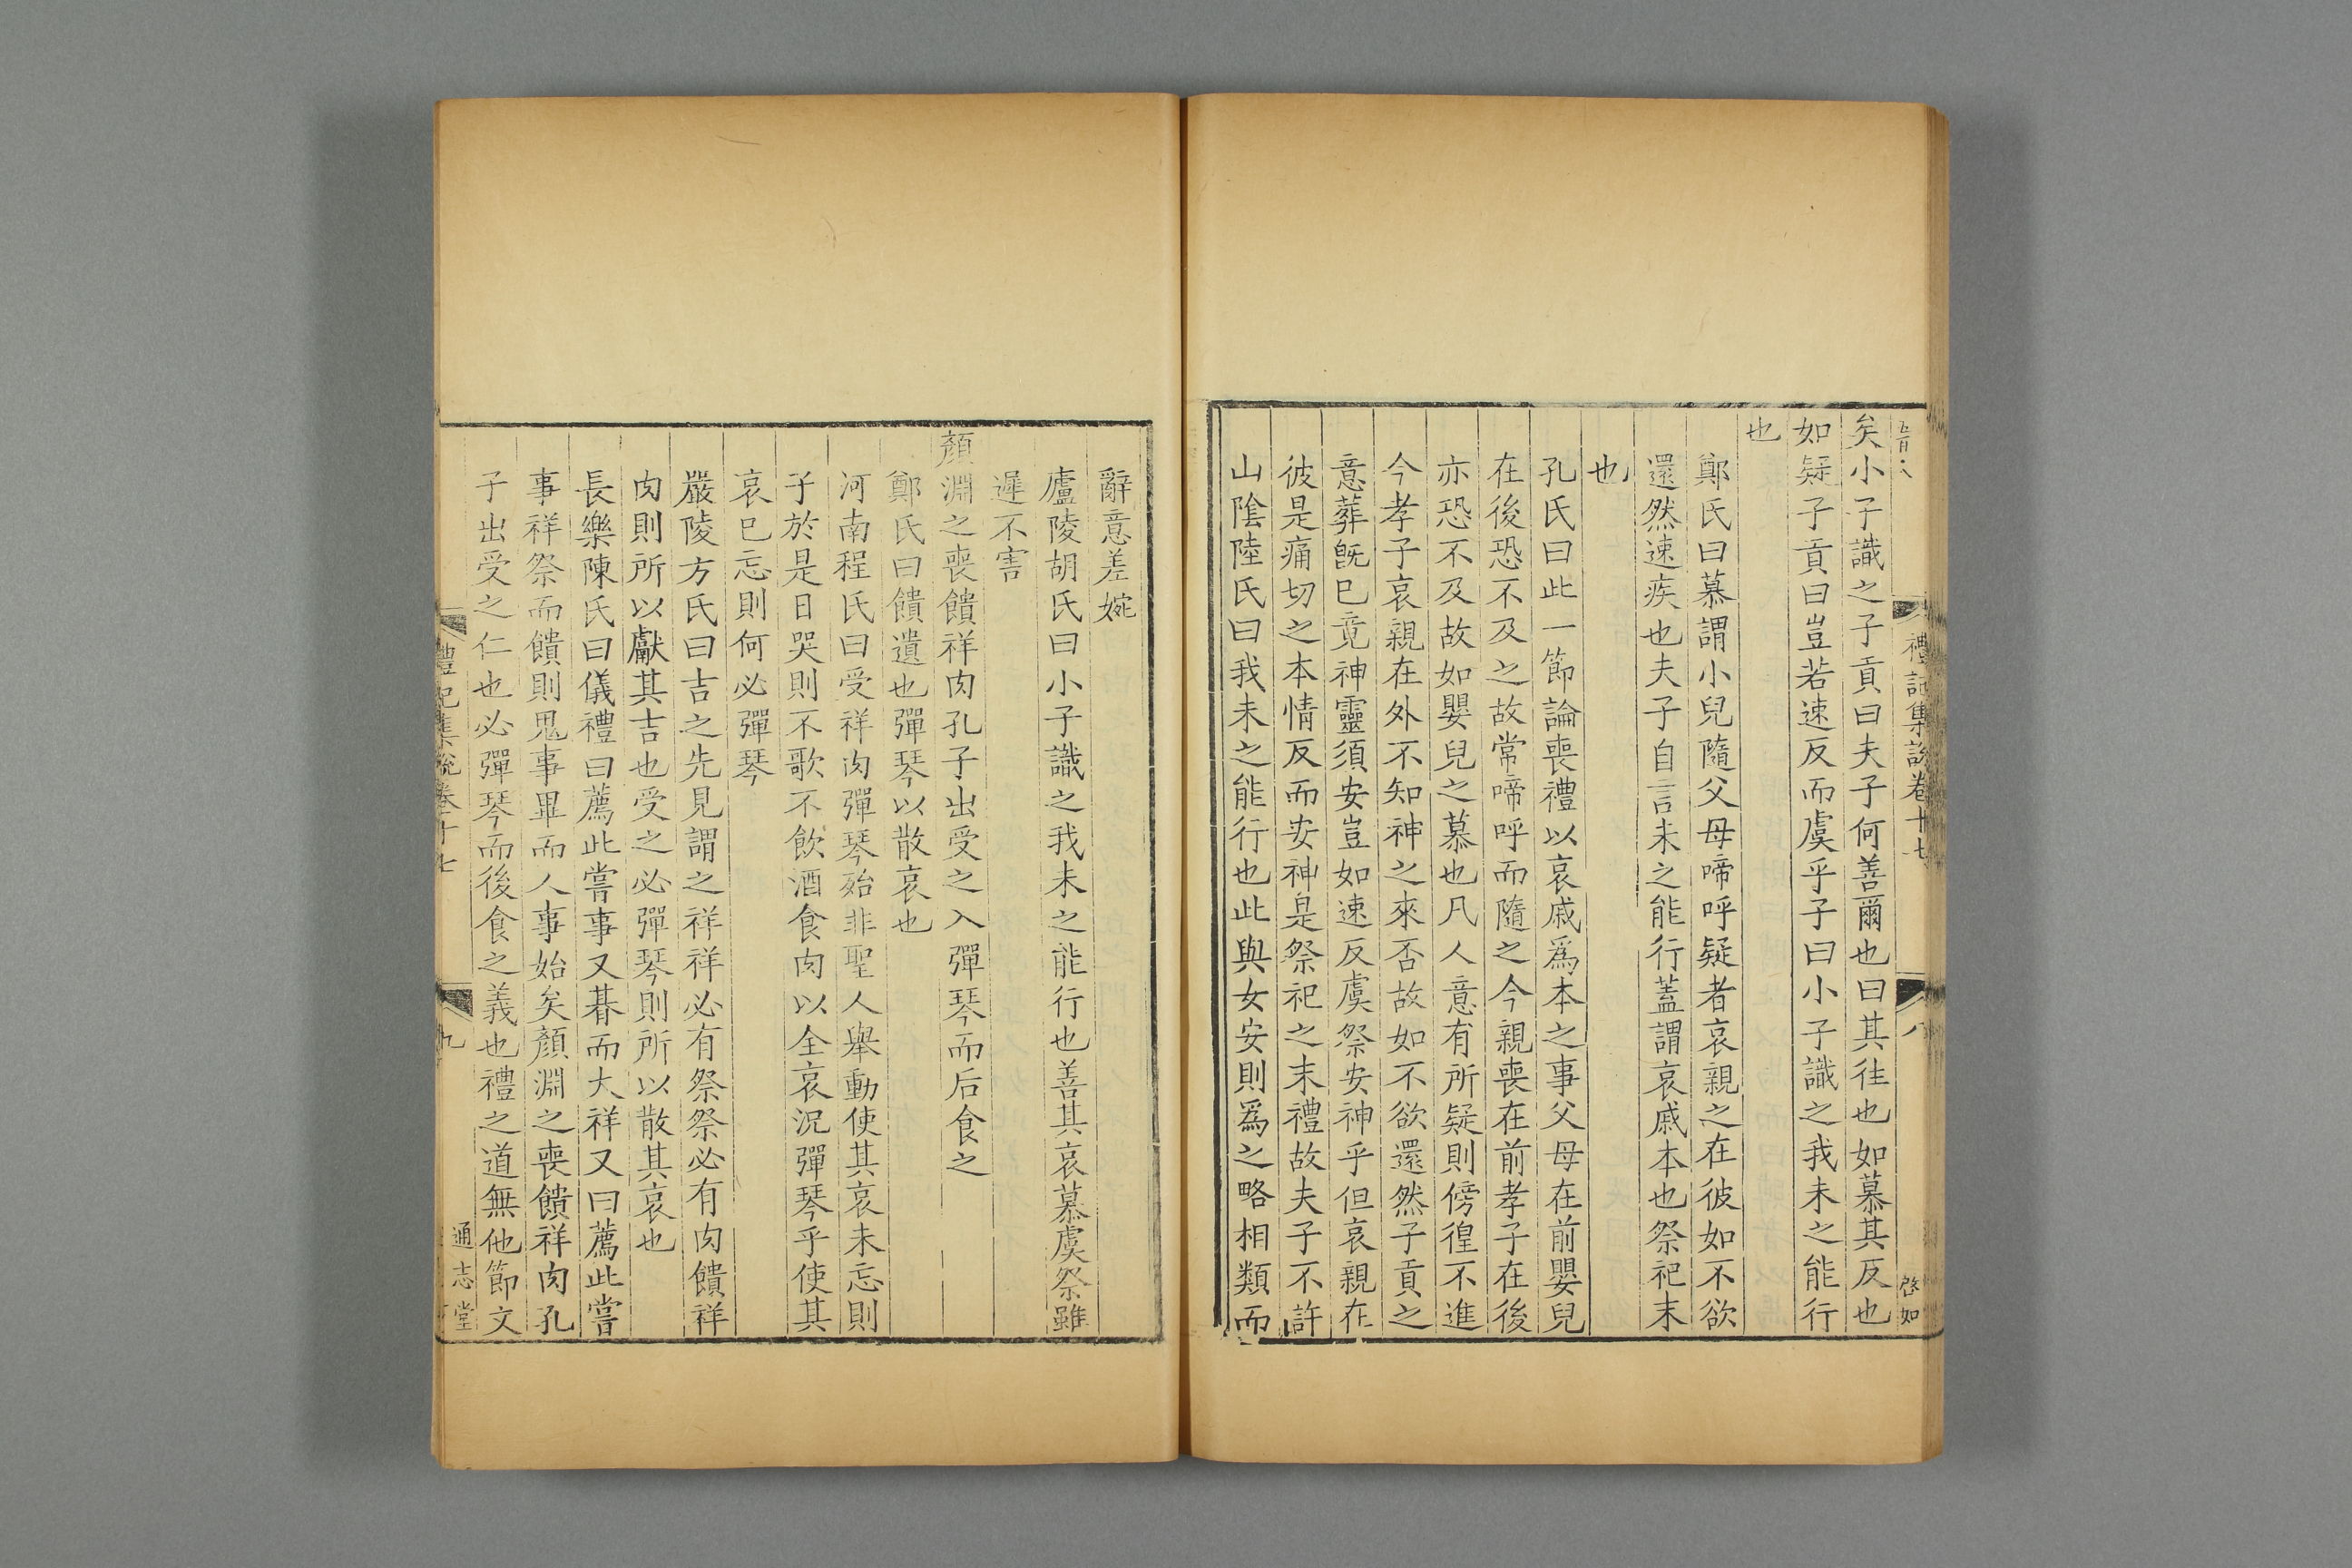 禮記集說卷十七
八
啓如
矣小子識之子貢曰夫子何善爾也曰其徃也如慕其反也
如疑子貢曰豈若速反而虞乎子曰小子識之我未之能行
也
鄭氏曰慕謂小兒隨父母啼呼疑者哀親之在彼如不欲
還然速疾也夫子自言未之能行蓋謂哀戚本也祭祀末
也
孔氏曰此一節論喪禮以哀戚爲本之事父母在前嬰兒
在後恐不及之故常啼呼而隨之今親喪在前孝子在後
亦恐不及故如嬰兒之慕也凡人意有所疑則傍徨不進
今孝子哀親在外不知神之來否故如不欲還然子貢之
意葬旣巳竟神靈須安豈如速反虞祭安神乎但哀親在
彼是痛切之本情反而安神是祭祀之末禮故夫子不許
山陰陸氏曰我未之能行也此與女安則爲之略相類而
辭意差婉
廬陵胡氏曰小子識之我未之能行也善其哀慕虞祭雖
遲不害
顏淵之喪饋祥肉孔子出受之入彈琴而后食之
鄭氏曰饋遺也彈琴以散哀也
河南程氏曰受祥肉彈琴殆非聖人舉動使其哀未忘則
子於是日哭則不歌不飲酒食肉以全哀況彈琴乎使其
哀巳忘則何必彈琴
嚴陵方氏曰吉之先見謂之祥祥必有祭祭必有肉饋祥
肉則所以獻其吉也受之必彈琴則所以散其哀也
長樂陳氏曰儀禮曰薦此嘗事又朞而大祥又曰薦此嘗
事祥祭而饋則鬼事畢而人事始矣顏淵之喪饋祥肉孔
子出受之仁也必彈琴而後食之義也禮之道無他節文
禮記集說卷十七
九
通志堂